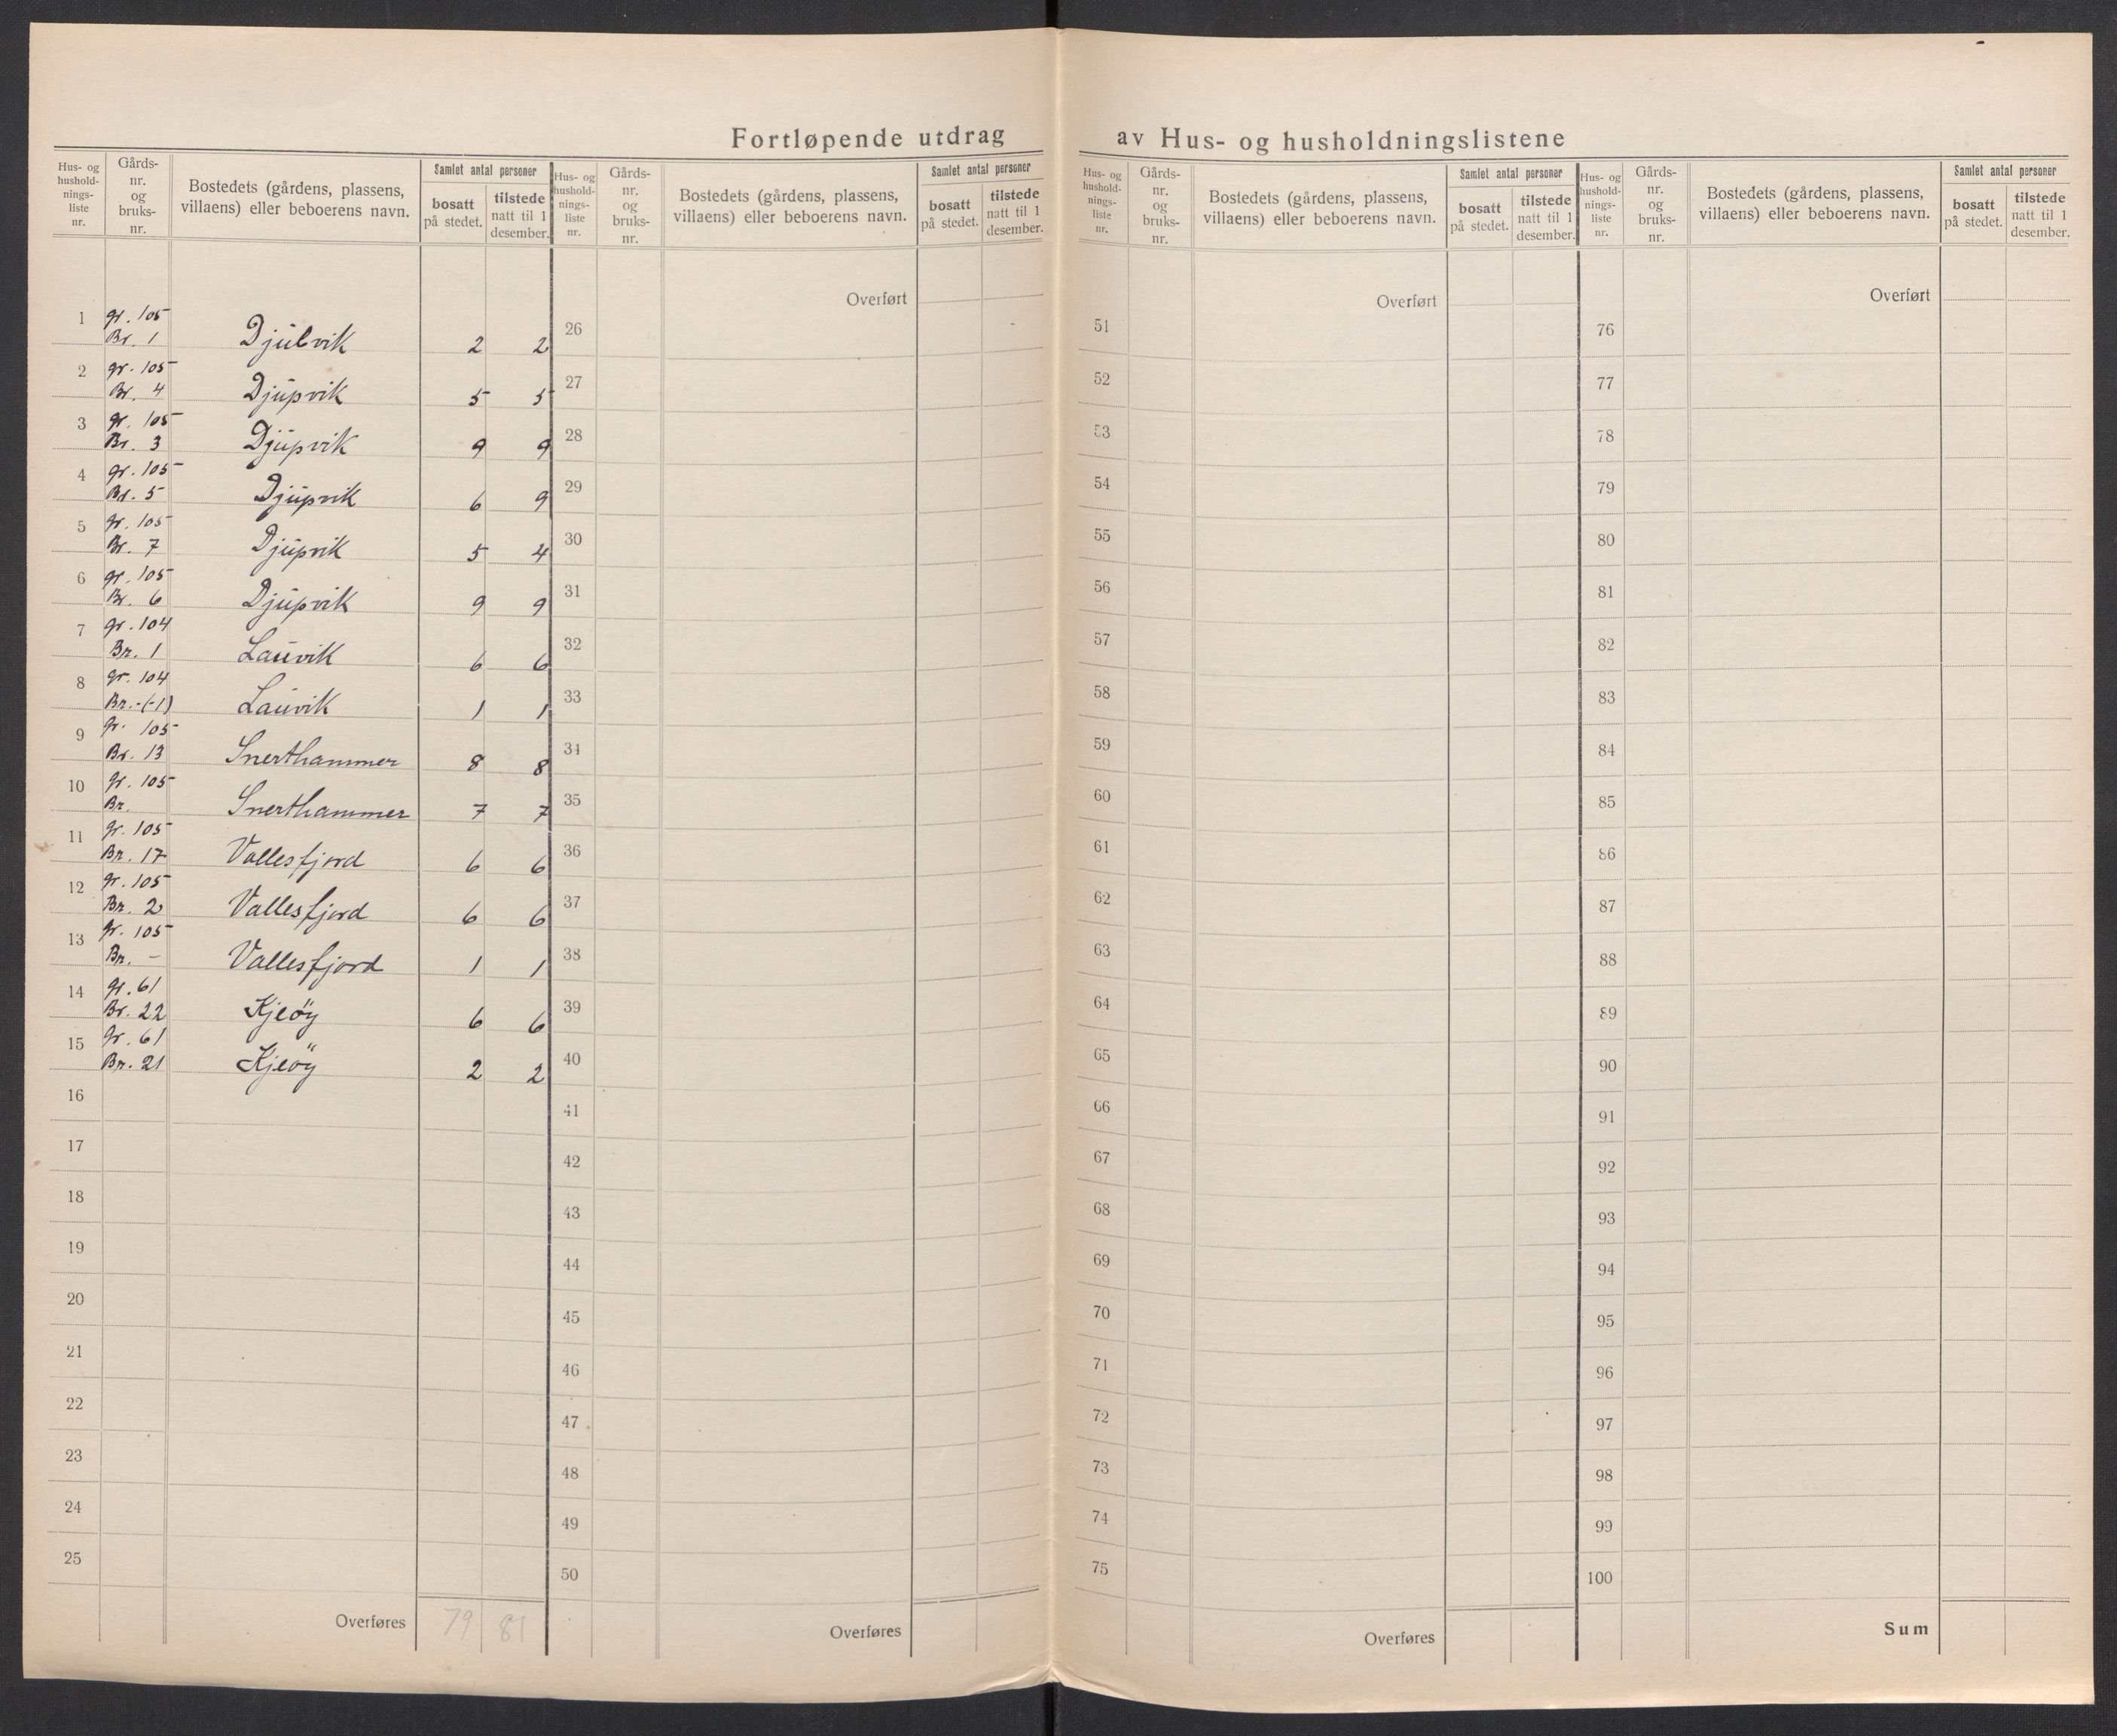 Fortløpende utdrag av Hus- og husholdningslistene
Hus- og hushold- nings- liste nr. | Gårds- nr. og bruks- nr. | Bostedets (gårdens, plassens, villaens) eller beboerens navn. | Samlet antal personer | bosatt på stedet. | tilstede natt til 1 desember.
1 | gr. 105 Br. 1 | Djubvik | 2 | 2
2 | gr. 105 Br. 4 | Djupvik | 5 | 5
3 | gr. 105 Br. 3 | Djupvik | 9 | 9
4 | gr. 105 Br. 5 | Djupvik | 6 | 9
5 | gr. 105 Br. 7 | Djupvik | 5 | 4
6 | gr. 105 Br. 6 | Djupvik | 9 | 9
7 | gr. 104 Br. 1 | Lauvik | 6 | 6
8 | gr. 104 Br. -(-1) | Lauvik | 1 | 1
9 | gr. 105 Br. 13 | Snerthammer | 8 | 8
10 | gr. 105 Br. | Snerthammer | 7 | 7
11 | gr. 105 Br. 17 | Vallesfjord | 6 | 6
12 | gr. 105 Br. 2 | Vallesfjord | 6 | 6
13 | gr. 105 Br. - | Vallesfjord | 1 | 1
14 | gr. 61 Br. 22 | Kjeöy | 6 | 6
15 | gr. 61 Br. 21 | Kjeöy | 2 | 2
16
17
18
19
20
21
22
23
24
25
Overføres 79 | 81
Hus- og hushold- nings- liste nr. | Gårds- nr. og bruks- nr. | Bostedets (gårdens, plassens, villaens) eller beboerens navn. | Samlet antal personer | bosatt på stedet. | tilstede natt til 1 desember.
Overført
26
27
28
29
30
31
32
33
34
35
36
37
38
39
40
41
42
43
44
45
46
47
48
49
50
Overføres
Hus- og hushold- nings- liste nr. | Gårds- nr. og bruks- nr. | Bostedets (gårdens, plassens, villaens) eller beboerens navn. | Samlet antal personer | bosatt på stedet. | tilstede natt til 1 desember.
Overført
51
52
53
54
55
56
57
58
59
60
61
62
63
64
65
66
67
68
69
70
71
72
73
74
75
Overføres
Hus- og hushold- nings- liste nr. | Gårds- nr. og bruks- nr. | Bostedets (gårdens, plassens, villaens) eller beboerens navn. | Samlet antal personer | bosatt på stedet. | tilstede natt til 1 desember.
Overført
76
77
78
79
80
81
82
83
84
85
86
87
88
89
90
91
92
93
94
95
96
97
98
99
100
Sum